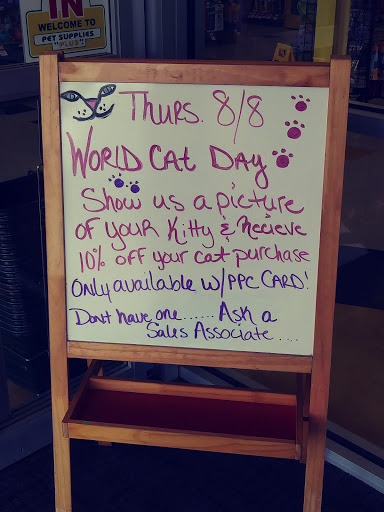 IN
WELCOME TO
PET SUPPLIES
"PLUS"
Thurs. 8/8
World Cat Day
Show us a picture
of your Kitty & Recieve
10% off your cat purchase
Only available w/PPC CARD!
Dont have one...... Ask a
Sales Associate....